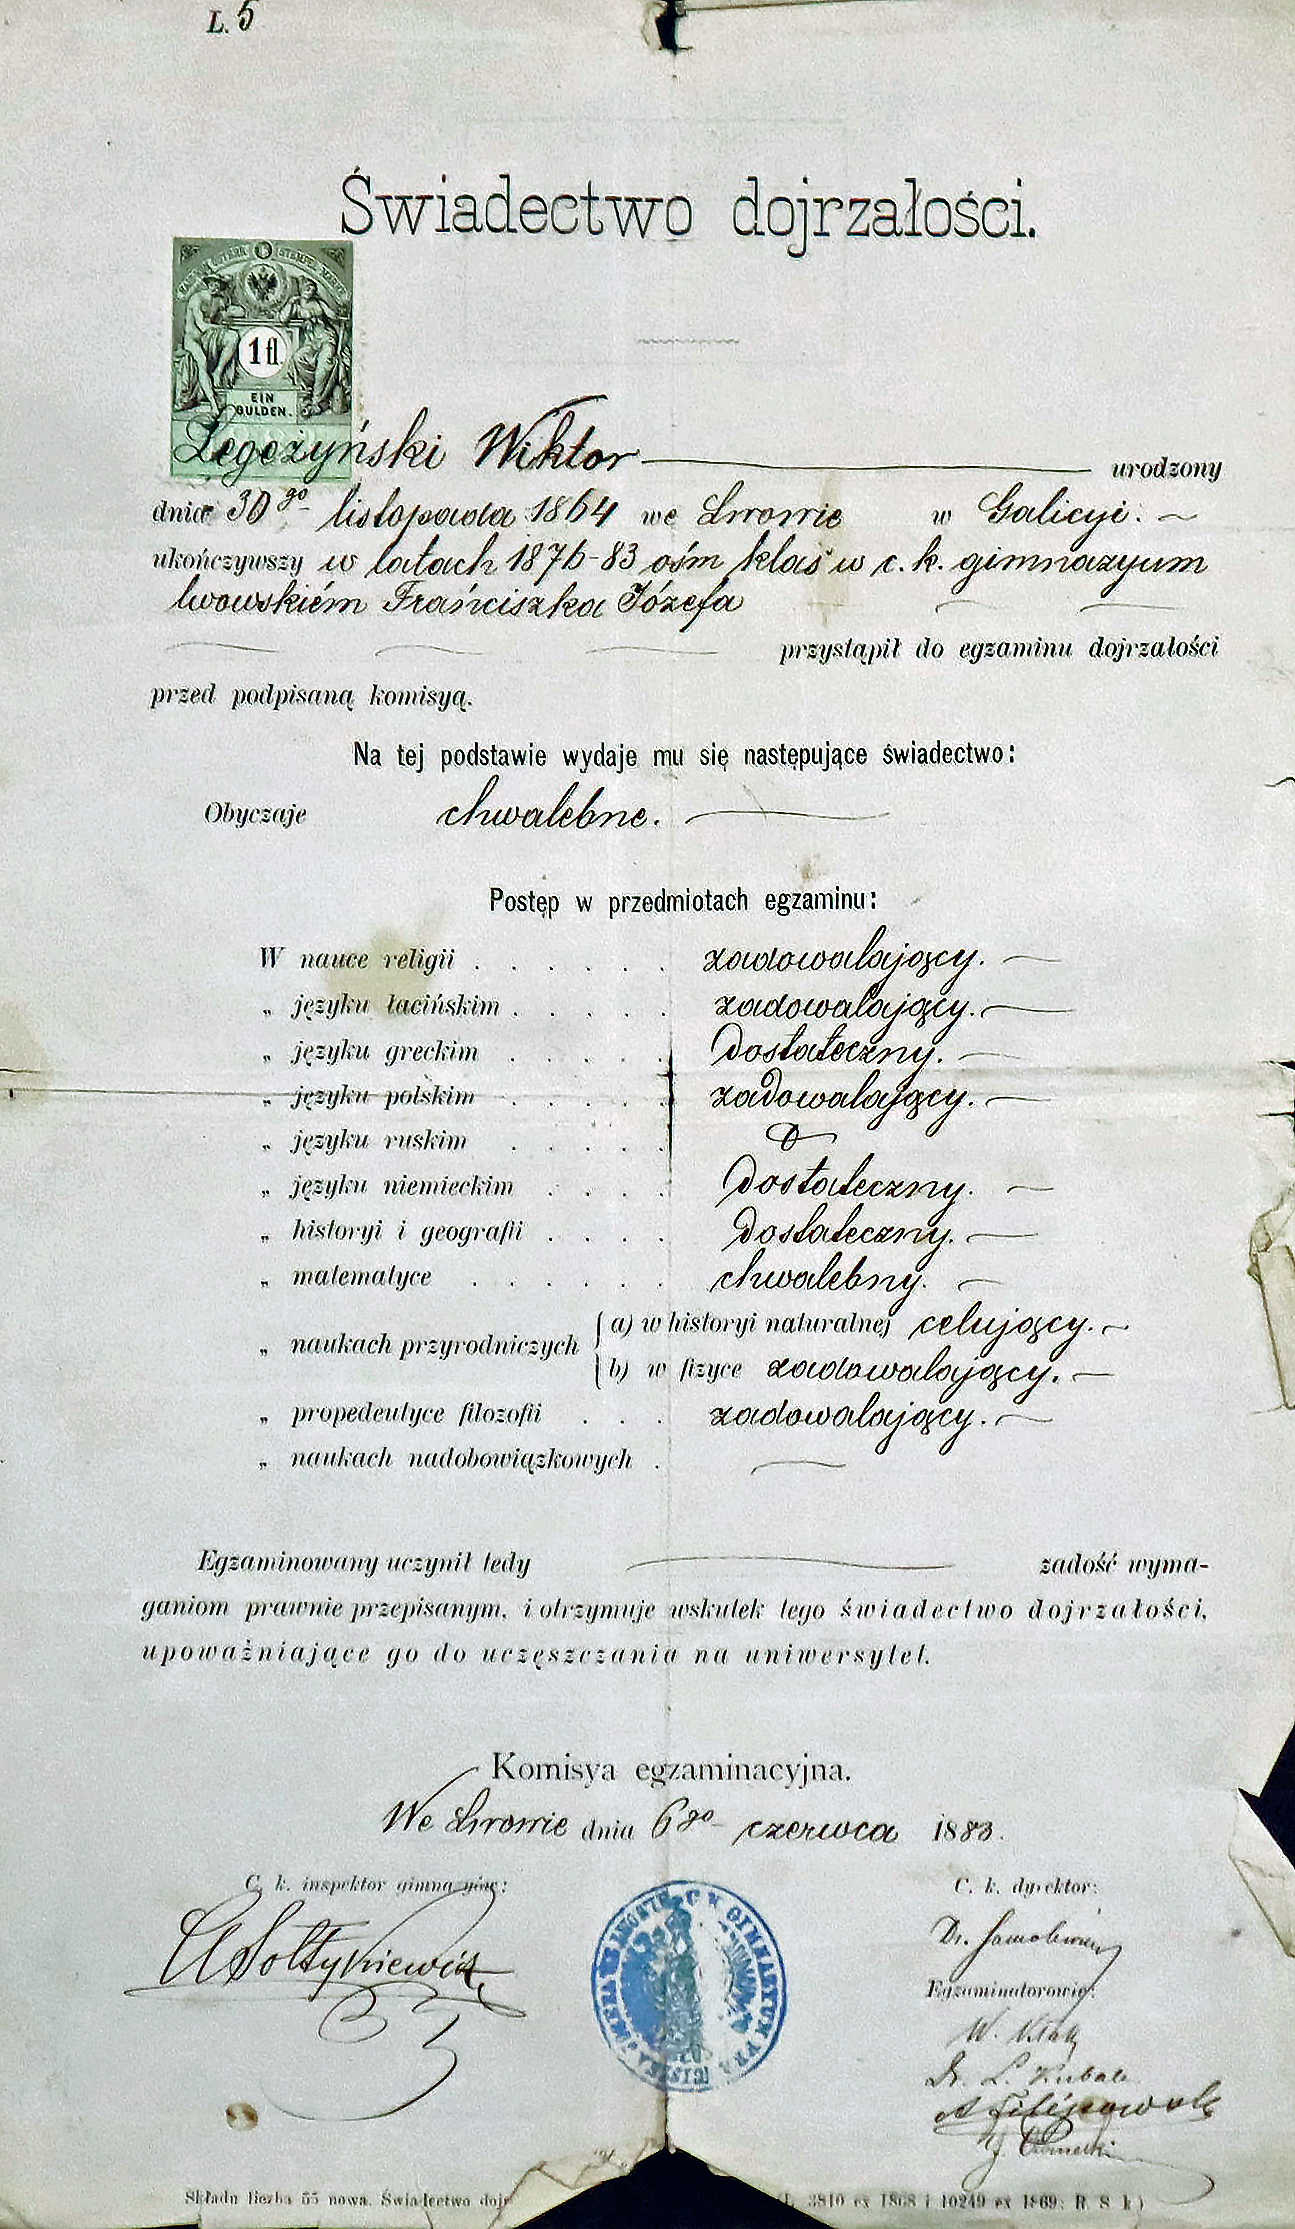 L. 5
Świadectwo dojrzałości.
STEMPEL MARKE
1 fl.
EIN
GULDEN.
Legeżyński Wiktor urodzony
dnia 30go listopada 1864 we Lwowie w Galicyi.
ukończywszy w latach 1876-83 ośm klas w c. k. gimnazyum
lwowskiém Franciszka Józefa
przystąpił do egzaminu dojrzałości
przed podpisaną komisyą.
Na tej podstawie wydaje mu się następujące świadectwo:
Obyczaje chwalebne.
Postęp w przedmiotach egzaminu:
W nauce religii . . . . . . zadowalający.
„ języku łacińskim . . . . . zadowalający.
„ języku greckim . . . . . dostateczny.
„ języku polskim . . . . . zadowalający.
„ języku ruskim . . . . .
„ języku niemieckim . . . . dostateczny.
„ historyi i geografii . . . . dostateczny.
„ matematyce . . . . . . chwalebny.
„ naukach przyrodniczych { a) w historyi naturalnej celujący.
b) w fizyce zadowalający.
„ propedeutyce filozofii . . . zadowalający.
„ naukach nadobowiązkowych .
Egzaminowany uczynił tedy zadość wyma-
ganiom prawnie przepisanym, i otrzymuje wskutek tego świadectwo dojrzałości,
upoważniające go do uczęszczania na uniwersytet.
Komisya egzaminacyjna.
We Lwowie dnia 6go czerwca 1883.
C. k. inspektor gimnazyów:
C. k. dyrektor:
Sołtykiewicz
Dr. Samolewicz
Egzaminatorowie:
W.
Dr. L. Kubala
J. Czarnecki
Składu liczba 55 nowa. Świadectwo doj
3810 ex 1868 i 10249 ex 1869; R. S. k.)